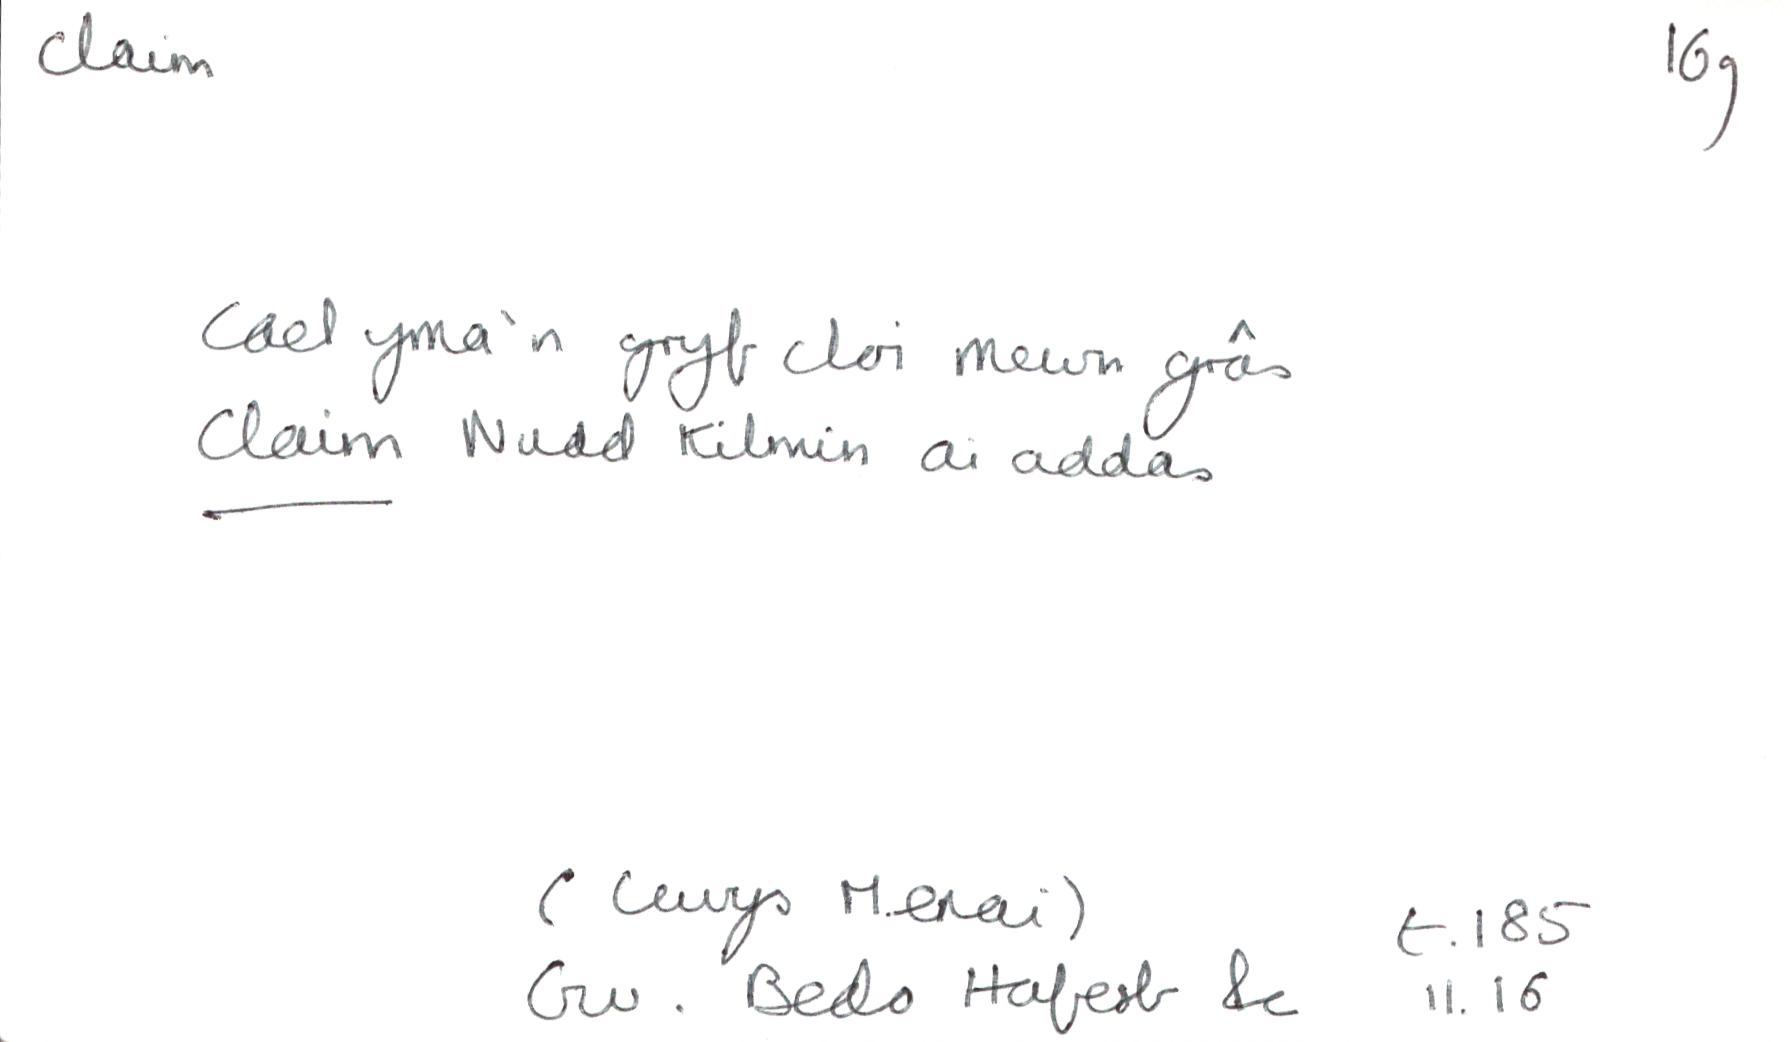 claim 16g
Cael yma'n gryf cloi mewn grâs
Claim Nudd Kilmin ai addas
(Lewys Menai) t.185
Gw. Bedo Hafesb &c 11.16